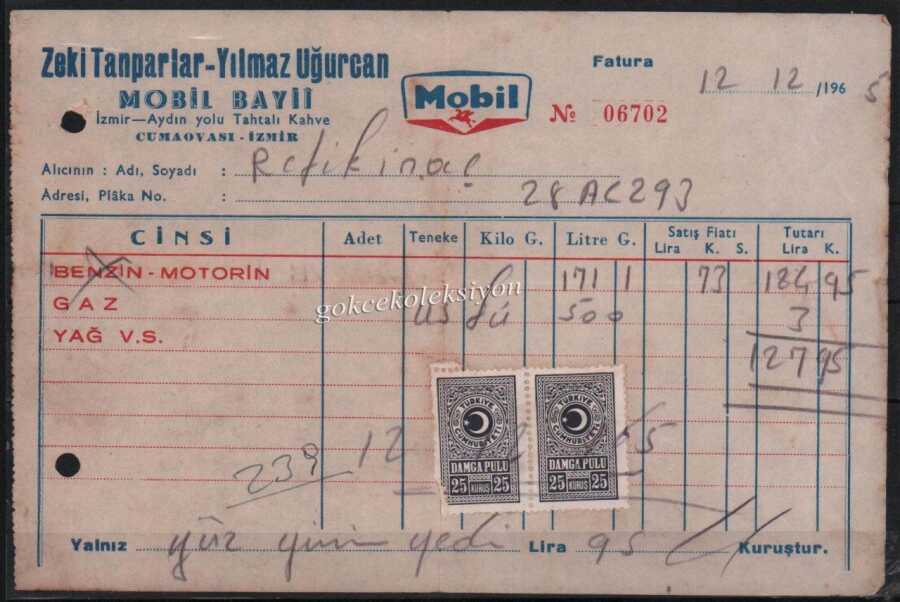 Zeki Tanparlar-Yılmaz Uğurcan
MOBİL BAYİİ
İzmir—Aydın yolu Tahtalı Kahve
CUMAOVASI - İZMİR
Mobil
Fatura
12 12 /1965
№ 06702
Alıcının : Adı, Soyadı : Refik inaç
Adresi, Plâka No. : 28 AC 293
CİNSİ Adet Teneke Kilo G. Litre G. Satış Fiatı Lira K. S. Tutarı Lira K.
BENZİN - MOTORİN 171 1 73 124 95
GAZ 500 3
YAĞ V.S. 127 95
gokcekoleksiyon
TÜRKİYE CUMHURİYETİ TÜRKİYE CUMHURİYETİ
12 12 65
DAMGA PULU DAMGA PULU
25 KURUŞ 25 25 KURUŞ 25
239
Yalnız yüz yirmi yedi Lira 95 Kuruştur.